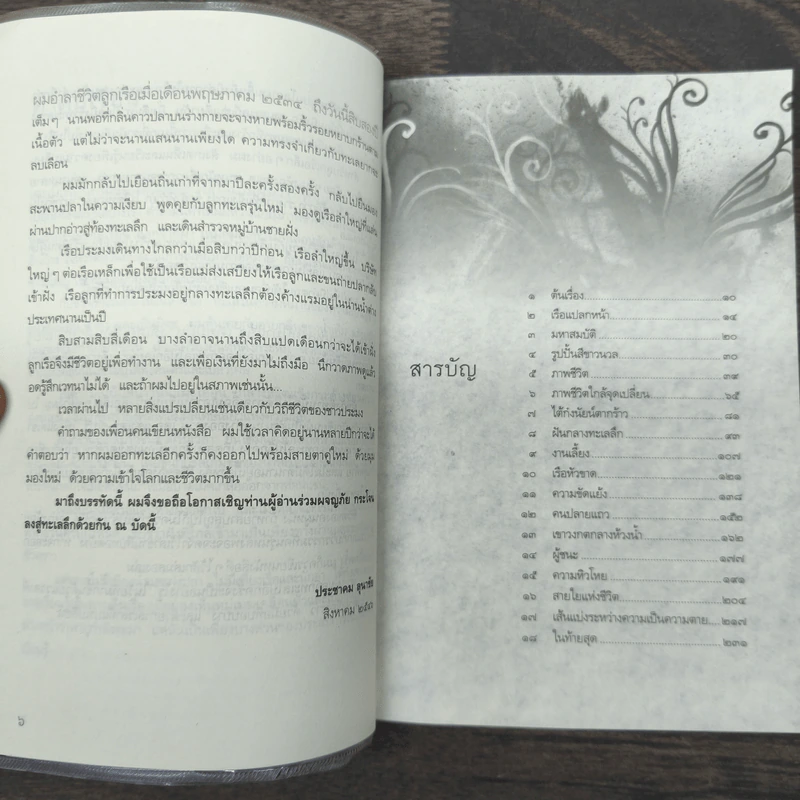 ผมอำลาชีวิตลูกเรือเมื่อเดือนพฤษภาคม ๒๕๓๔ ถึงวันนี้สิบสองปี
เต็มๆ นานพอที่กลิ่นคาวปลาบนร่างกายจะจางหายพร้อมริ้วรอยหยาบกร้าน
เนื้อตัว แต่ไม่ว่าจะนานแสนนานเพียงใด ความทรงจำเกี่ยวกับทะเลยาก
ลบเลือน
ผมมักกลับไปเยือนถิ่นเก่าที่จากมาปีละครั้งสองครั้ง กลับไปยืน
สะพานปลาในความเงียบ พูดคุยกับลูกทะเลรุ่นใหม่ มองดูเรือลำใหญ่ที่
ผ่านปากอ่าวสู่ท้องทะเลลึก และเดินสำรวจหมู่บ้านชายฝั่ง
เรือประมงเดินทางไกลกว่าเมื่อสิบกว่าปีก่อน เรือลำใหญ่ขึ้น บริษัท
ใหญ่ๆ ต่อเรือเหล็กเพื่อใช้เป็นเรือแม่ส่งเสบียงให้เรือลูกและขนถ่ายปลากลับ
เข้าฝั่ง เรือลูกที่ทำการประมงอยู่กลางทะเลลึกต้องค้างแรมอยู่ในน่านน้ำ
ประเทศนานเป็นปี
สิบสามสิบสี่เดือน บางลำอาจนานถึงสิบแปดเดือนกว่าจะได้เข้าฝั่ง
ลูกเรือจึงมีชีวิตอยู่เพื่อทำงาน และเพื่อเงินที่ยังมาไม่ถึงมือ นึกวาดภาพดูแล้ว
อดรู้สึกเวทนาไม่ได้ และถ้าผมไปอยู่ในสภาพเช่นนั้น...
เวลาผ่านไป หลายสิ่งแปรเปลี่ยนเช่นเดียวกับวิถีชีวิตของชาวประมง
คำถามของเพื่อนคนเขียนหนังสือ ผมใช้เวลาคิดอยู่นานหลายปีกว่าจะได้
คำตอบว่า หากผมออกทะเลอีกครั้งก็คงออกไปพร้อมสายตาคู่ใหม่ ด้วยมุม
มองใหม่ ด้วยความเข้าใจโลกและชีวิตมากขึ้น
มาถึงบรรทัดนี้ ผมจึงขอถือโอกาสเชิญท่านผู้อ่านร่วมผจญภัย กระโจน
ลงสู่ทะเลลึกด้วยกัน ณ บัดนี้
ประชาคม ลุนาชัย
สิงหาคม ๒๕๔๖
๖
สารบัญ
๑ ต้นเรื่อง ๑๐
๒ เรือแปลกหน้า ๑๔
๓ มหาสมบัติ ๒๐
๔ รูปปั้นสีขาวนวล ๓๐
๕ ภาพชีวิต ๓๙
๖ ภาพชีวิตใกล้จุดเปลี่ยน ๖๕
๗ ไต้ก๋งนัยน์ตากร้าว ๘๑
๘ ฝันกลางทะเลลึก ๙๓
๙ งานเลี้ยง ๑๐๗
๑๐ เรือหัวขาด ๑๒๑
๑๑ ความขัดแย้ง ๑๓๘
๑๒ คนปลายแถว ๑๕๒
๑๓ เขาวงกตกลางห้วงน้ำ ๑๖๒
๑๔ ผู้ชนะ ๑๗๗
๑๕ ความหิวโหย ๑๙๑
๑๖ สายใยแห่งชีวิต ๒๐๔
๑๗ เส้นแบ่งระหว่างความเป็นความตาย ๒๑๗
๑๘ ในท้ายสุด ๒๓๑